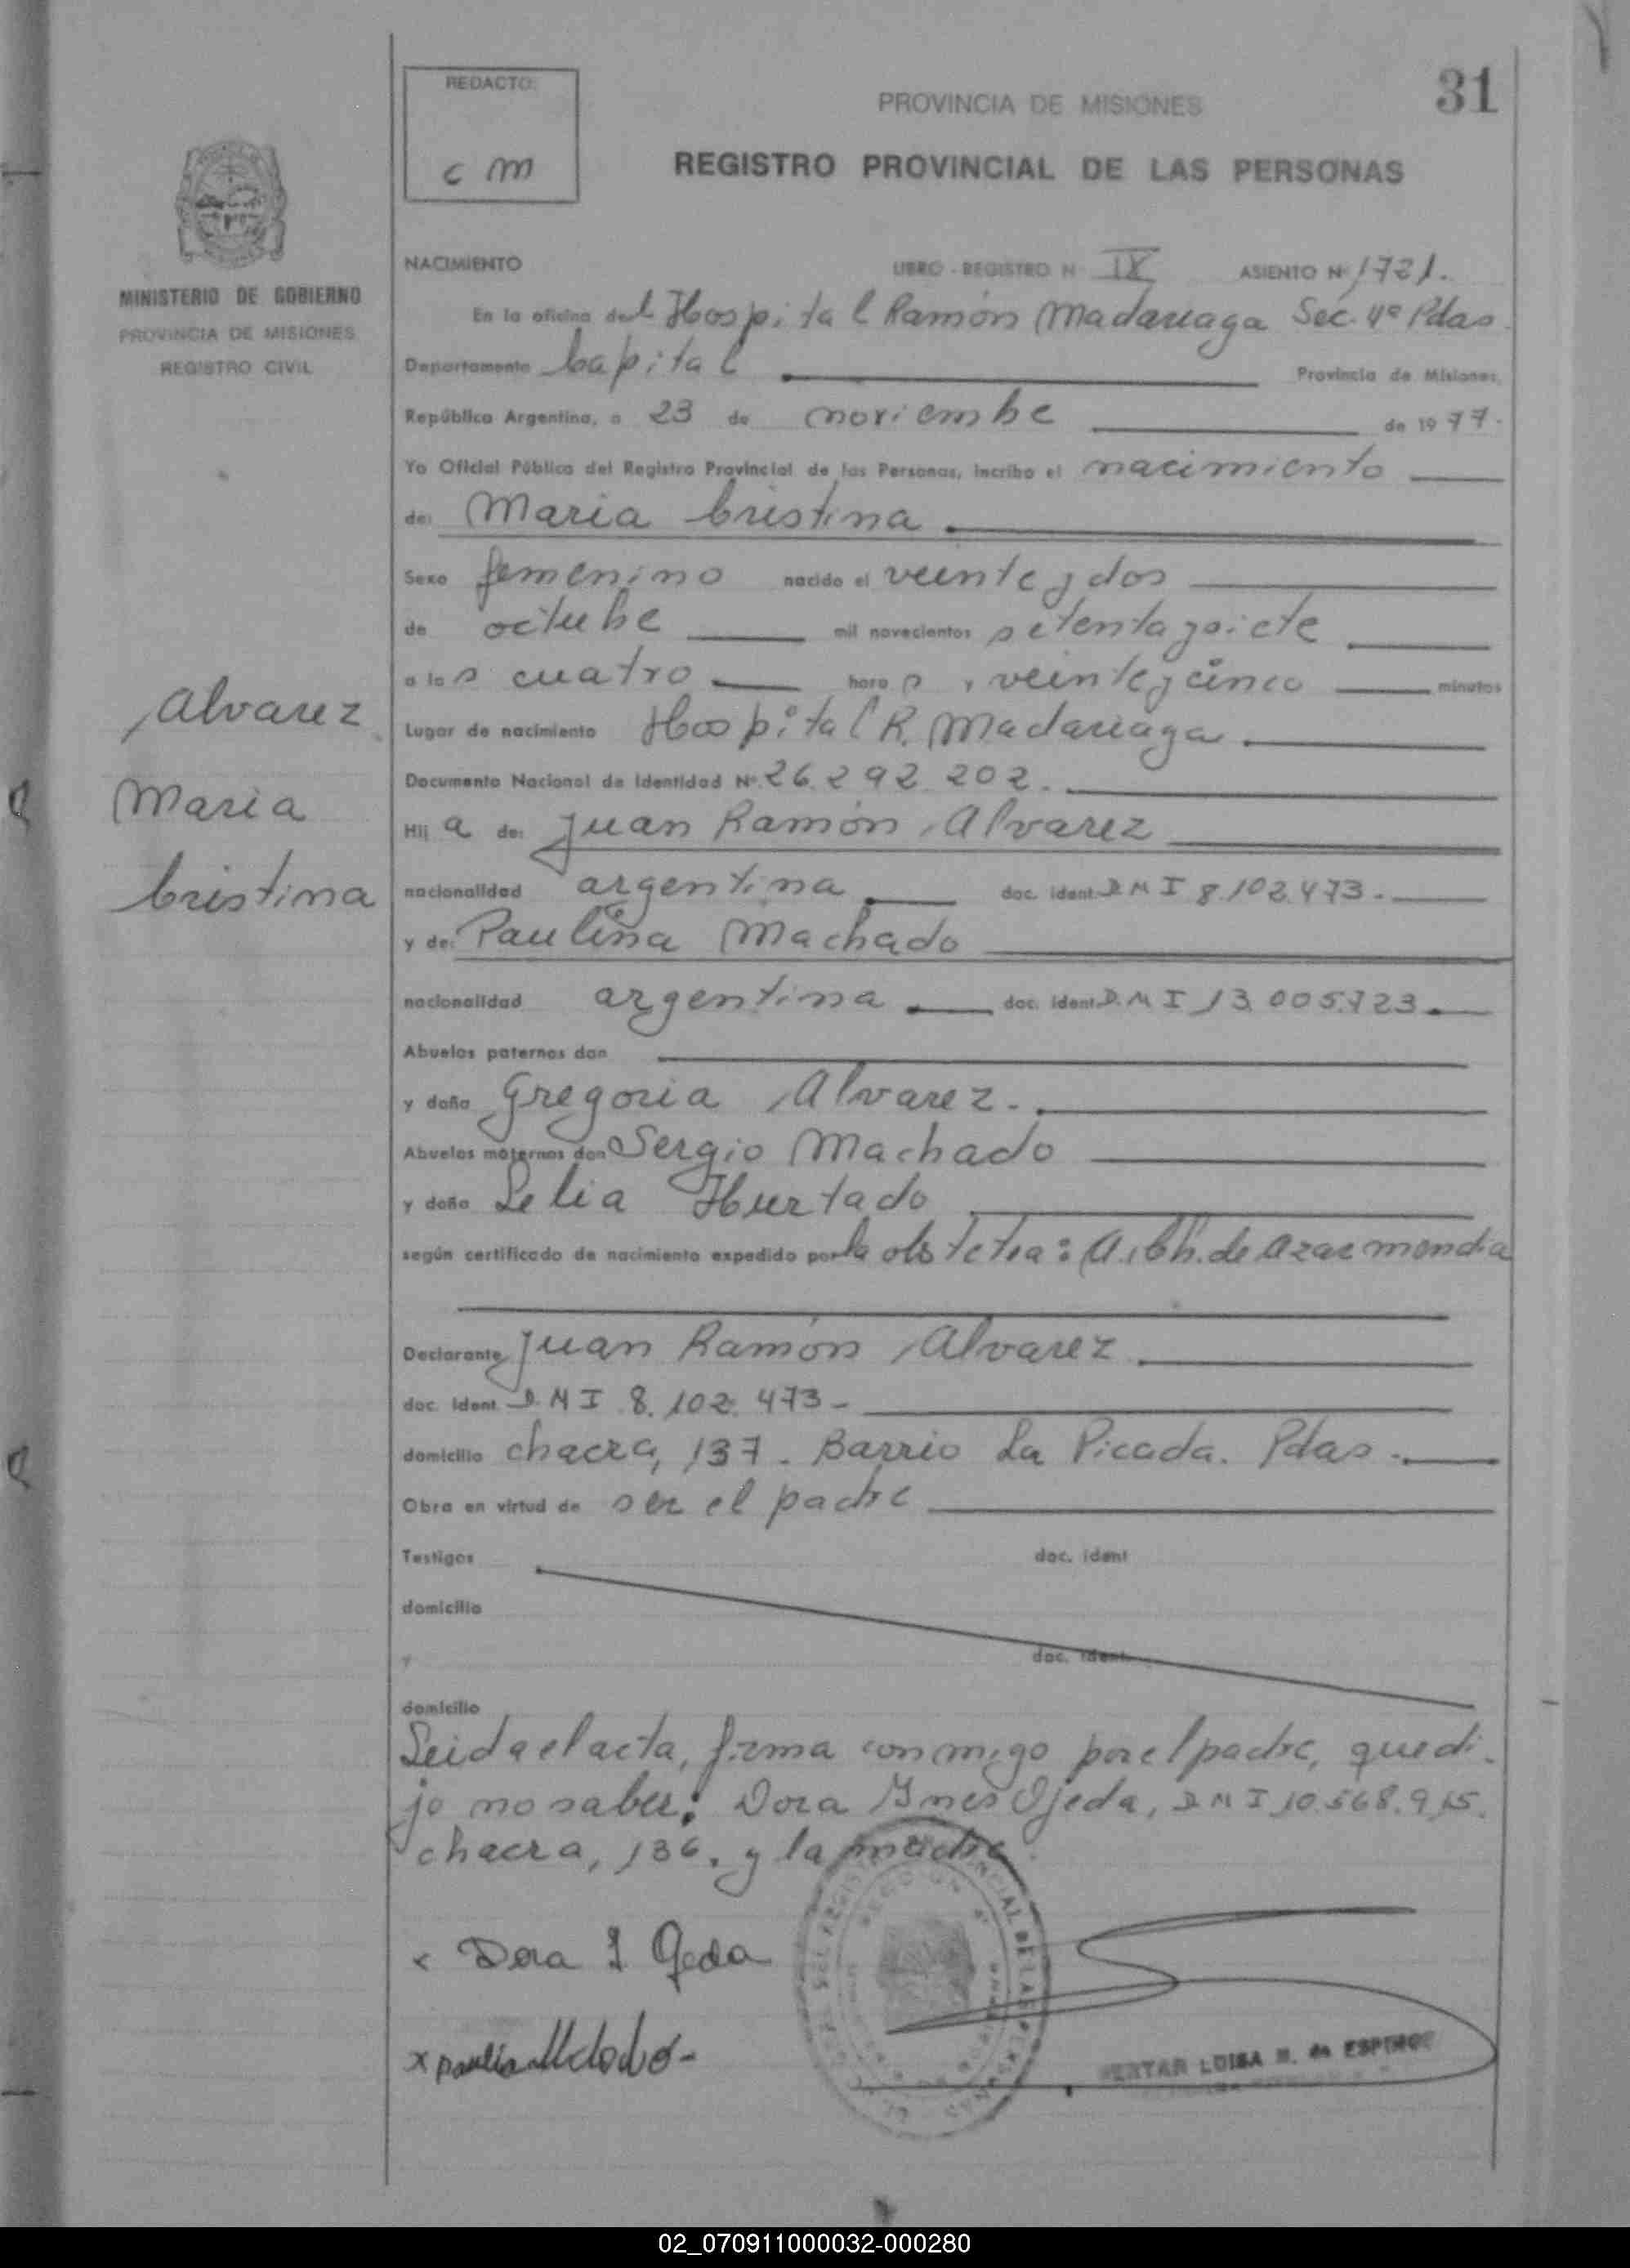 REDACTO:
c m
PROVINCIA DE MISIONES
31
REGISTRO PROVINCIAL DE LAS PERSONAS
MINISTERIO DE GOBIERNO
PROVINCIA DE MISIONES
REGISTRO CIVIL
NACIMIENTO LIBRO - REGISTRO N IX ASIENTO Nº 1721.
En la oficina del Hospital Ramón Madariaga Sec. 4ª Pdas.
Departamento Capital Provincia de Misiones,
República Argentina, a 23 de noviembre de 1977.
Yo Oficial Público del Registro Provincial de las Personas, incribo el nacimiento
de: Maria Cristina
Sexo femenino nacido el veinte y dos
de octubre mil novecientos setenta y siete
a las cuatro horas, veinte y cinco minutos
Lugar de nacimiento Hospital R. Madariaga
Documento Nacional de Identidad Nº 26.292.202.
Hija de: Juan Ramón Alvarez
nacionalidad argentina doc. ident. DNI 8.102.473.
y de: Paulina Machado
nacionalidad argentina doc. ident. D.N I 13.005.723.
Abuelos paternos don
y doña Gregoria Alvarez.
Abuelos maternos don Sergio Machado
y doña Lelia Hurtado
según certificado de nacimiento expedido por la obstetra: A. Ch. de Azarmendia
Declarante Juan Ramón Alvarez
doc. ident. D.N I 8.102.473-
domicilio chacra, 137. Barrio La Picada. Pdas.
Obra en virtud de ser el padre
Testigos doc. ident
domicilio
y doc. ident.
domicilio
Leida el acta, firma conmigo por el padre, que di-
jo no saber: Dora Ines Ojeda, DNI 10.568.915.
chacra, 136. y la madre.
Alvarez
Maria
Cristina
Dora I Ojeda
x
LUISA M. de ESPINOZ
02_070911000032-000280